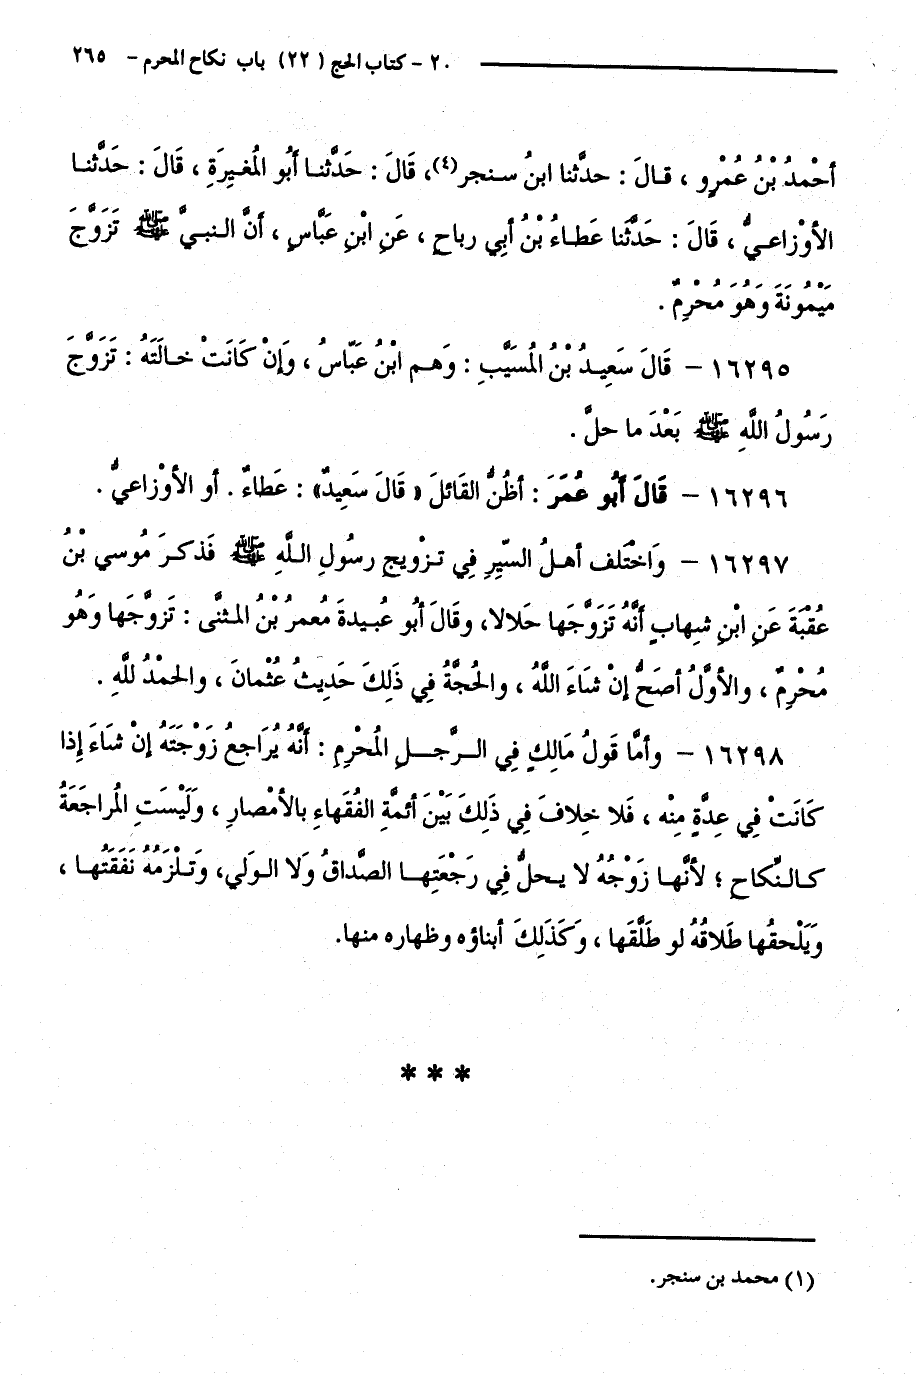 ٢٠ - كتاب الحج (٢٢) باب نكاح المحرم - ٢٦٥
أحْمدُ بْنُ عُمْرٍو ، قـالَ : حدثَّنا ابنُ سـنجر(٤)، قَالَ : حَدَّثنـا أَبُو الْمُغيِرَةِ ، قَالَ : حَدَّثنـا
الأوْزاعـيُّ ، قَالَ : حَدَّثَنا عَطـاءُ بْنُ أبِي رباحٍ ، عَنِ ابْنِ عَبَّاسٍ ، أنَّ الـنبيَّ ﷺ تَزَوَّجَ
مَيْمُونَةَ وَهُوَ مُحْرِمٌ .
١٦٢٩٥ - قَالَ سَعِيـدُ بْنُ الْمُسَيَّبِ : وَهـم ابْنُ عَبّاسُ ، وَإِنْ كَانَتْ خـالَتَهُ : تَزَوَّجَ
رَسُولُ اللَّهِ ﷺ بَعْدَ ما حلَّ .
١٦٢٩٦ - قَالَ أَبُو عُمَرَ : أظُنُّ القَائلَ « قَالَ سَعِيدٌ» : عَطاءٌ . أو الأوْزاعيُّ .
١٦٢٩٧ - وَاخْتَلف أهـلُ السِّيِرِ فِي تـزْويجِ رسُولِ الـلَّهِ ﷺ فَذكـرَ مُوسي بْنُ
عُقْبَةَ عَنِ ابْنِ شِهابٍ أنَّهُ تَزَوَّجَها حَلالا، وقَالَ أَبُو عُبـيدةَ مُعمرُ بْنُ الـمثنَّى : تَزوَّجَها وَهُو
مُحْرِمٌ ، والأوَّلُ أصَحُّ إنْ شاءَ اللَّهُ ، والحُجَّةُ فِي ذَلِكَ حَدِيثُ عُثْمانَ ، والحمْدُ للَّهِ .
١٦٢٩٨ - وأمَّا قَولُ مَالِكٍ فِي الـرَّجُــلِ الْمُحْرِمِ : أنَّهُ يُرَاجعُ زَوْجَتَهُ إنْ شاءَ إِذا
كَانَتْ فِي عِدَّةٍ مِنْه ، فَلا خِلافَ فِي ذَلِكَ بَيْنَ أئمَّةِ الفُقَهاءِ بالأمْصارِ ، وَلَيْسَتِ الْمُراجَعَةُ
كـالـنِّكاحِ ؛ لأنَّهـا زَوْجُهُ لا يـحلُّ فِي رَجْعَتِهـا الصَّداقُ وَلا الـولَي، وَتـلْزمُهُ نَفَقَتُهـا ،
وَيَلْحقُها طَلاقُهُ لو طَلَّقَها ، وَكَذَلِكَ أبناؤه وظهاره منها.
* * *
(١) محمد بن سنجر.